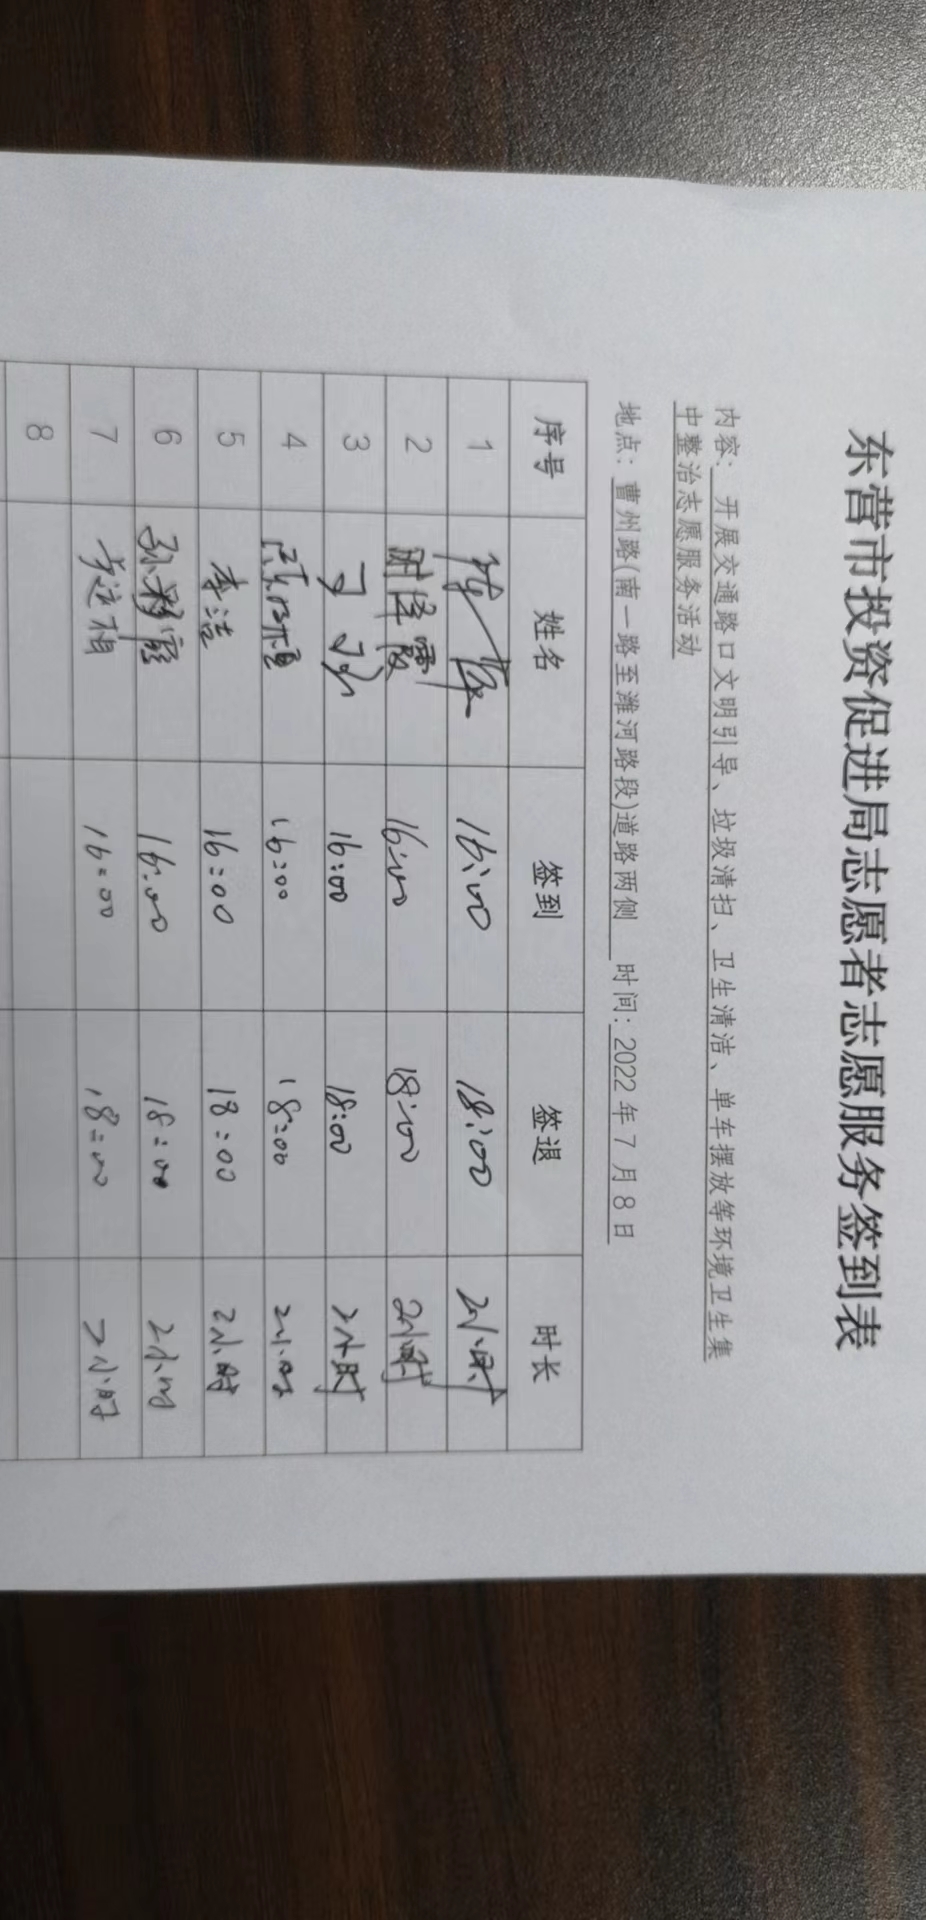 东营市投资促进局志愿者志愿服务签到表
内容: 开展交通路口文明引导、垃圾清扫、卫生清洁、单车摆放等环境卫生集
中整治志愿服务活动
地点: 曹州路(南一路至潍河路段)道路两侧 时间: 2022年7月8日
序号 姓名 签到 签退 时长
1 16:00 18:00 2小时
2 16:00 18:00 2小时
3 16:00 18:00 2小时
4 16:00 18:00 2小时
5 李洁 16:00 18:00 2小时
6 16:00 18:00 2小时
7 16:00 18:00 2小时
8